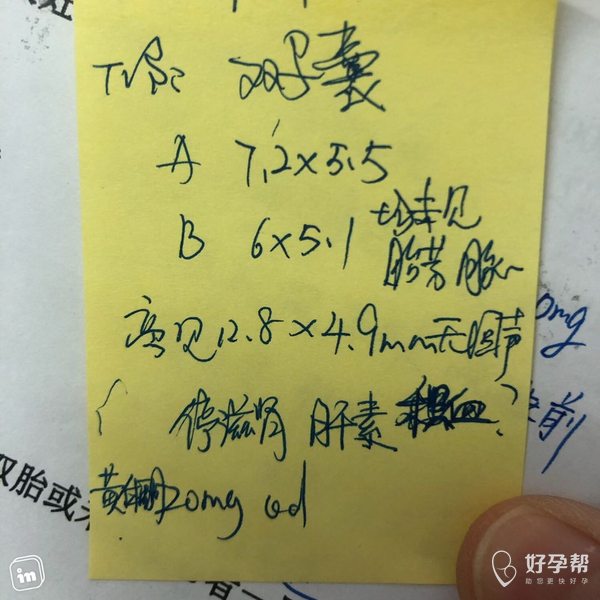 双孕囊
A 7.2×5.5
B 6×5.1 均未见
胎芽 胎心
旁见12.8×4.9mm无回声
停滋肾 肝素
黄体酮20mg qd
0mg
前
双胎或
好孕帮
助您更快好孕
in